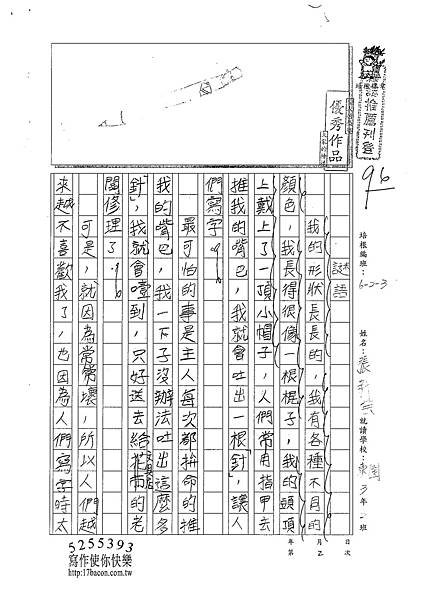 推薦刊登
優秀作品
96
培根編班：6-2-3
姓名：
就讀學校：
3年
班
日次
年第
謎語
我的形狀長長的，我有各種不同的
顏色，我長得很像一根棍子，我的頭頂
上戴上了一頂小帽子，人們常用指甲去
推我的嘴巴，我就會吐出一根「針」，讓人
們寫字。
最可怕的事是主人每次都拚命的推
我的嘴巴，我一下子沒辦法吐出這麼多
「針」，我就會噎到，只好送去給文具店的老
闆修理了。
可是，就因為常常壞，所以人們越
來越不喜歡我了，也因為人們寫字時太
5255393
寫作使你快樂
http://17bacon.com.tw